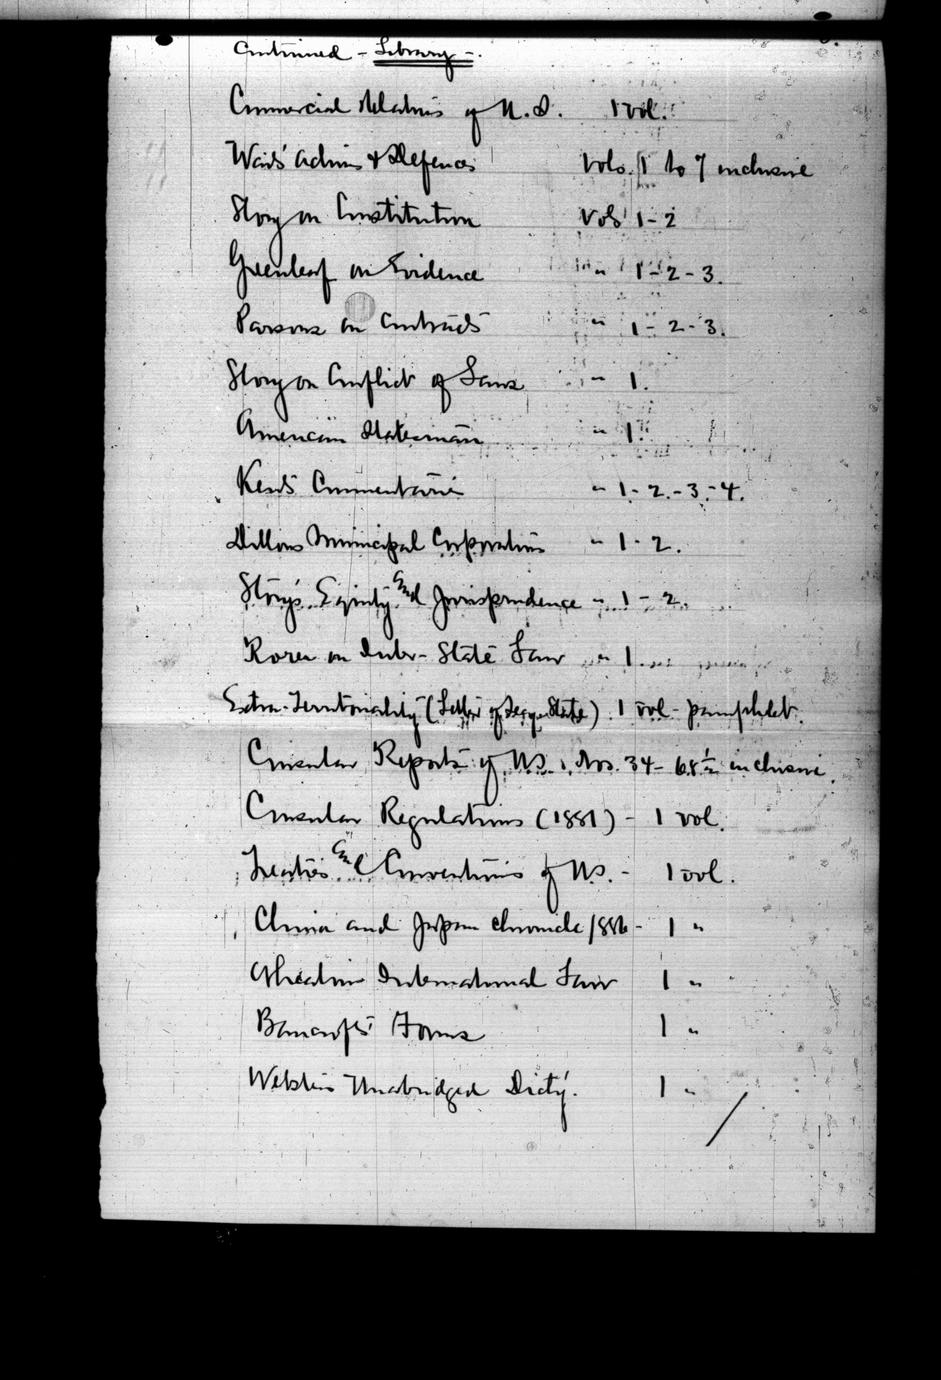 Continued - Library -.
Commercial Relations of U.S. 1 vol.
Waits' Actions & Defences Vols. 1 to 7 inclusive
Story on Constitution Vols 1-2
Greenleaf on Evidence " 1-2-3.
Parsons on Contracts " 1-2-3.
Story on Conflict of Laws " 1.
American Statesman " 1.
Kents Commentaries " 1-2-3-4.
Dillons Municipal Corporations " 1-2.
Story's Equity Jurisprudence " 1-2.
Rorer on Inter-State Law " 1.
Extra-Territoriality (Letter of Secy State) 1 vol - pamphlet.
Consular Reports of U.S. Nos. 34-68½ inclusive.
Consular Regulations (1881) - 1 vol.
Treaties and Conventions of U.S. - 1 vol.
China and Japan Chronicle 1886 - 1 "
Wheatons International Law 1 "
Bancrofts' Forms 1 "
Websters Unabridged Dicty. 1 "